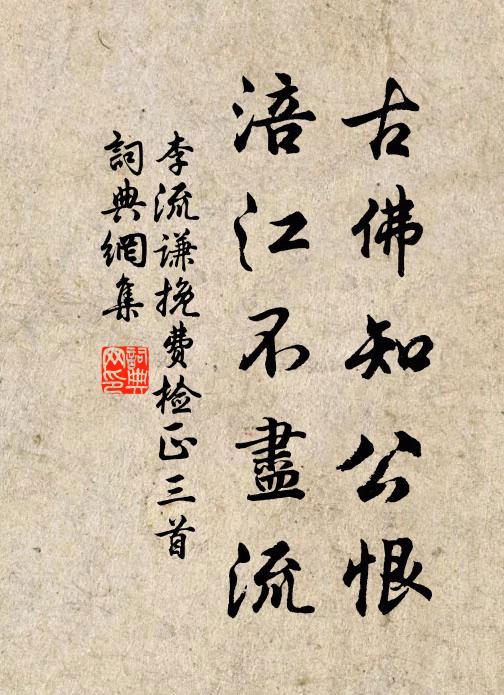 古佛知公恨
涪江不盡流
李流谦挽费检正三首
詞典網集
詞典
网印